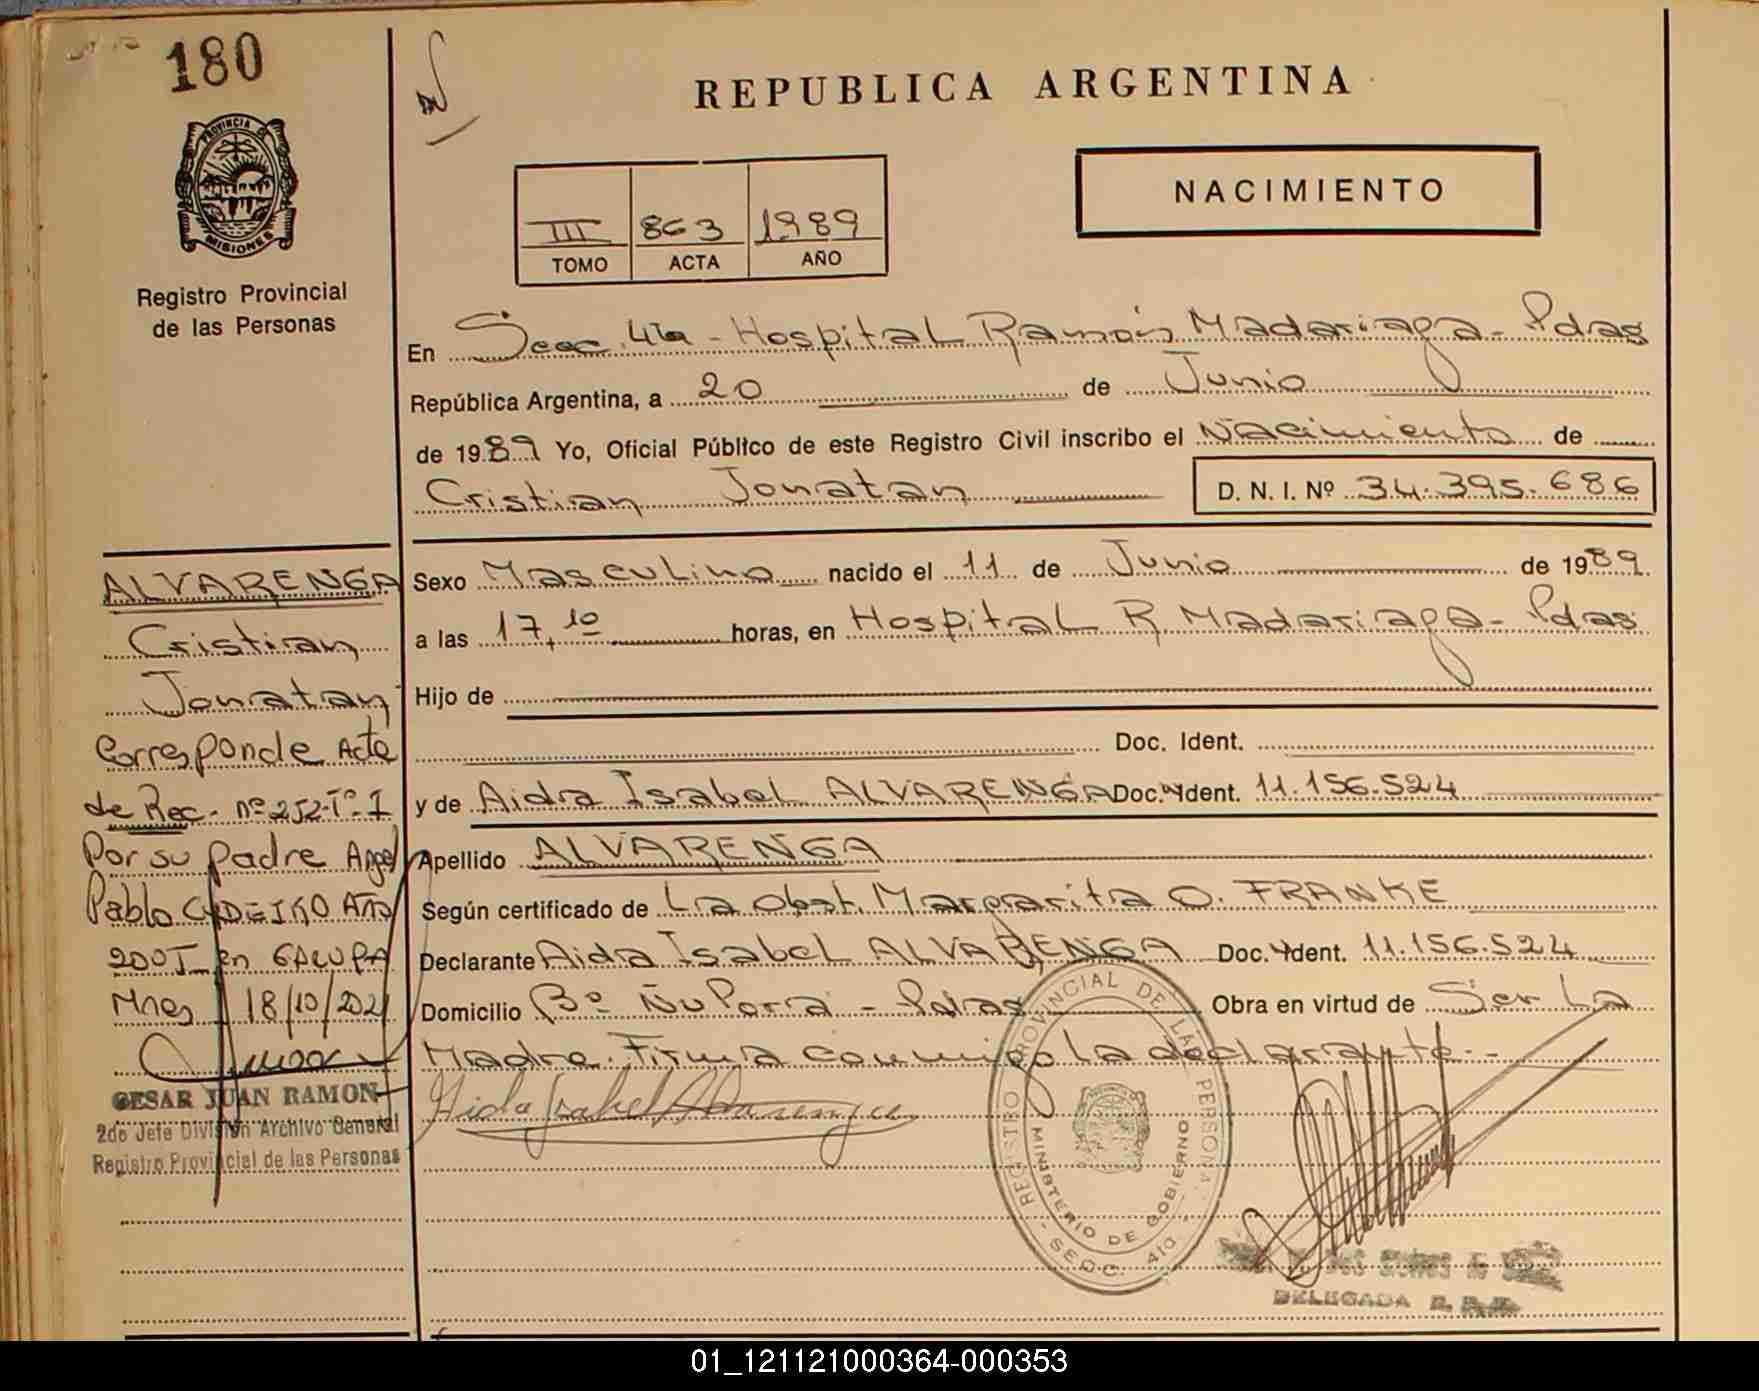 180
REPUBLICA ARGENTINA
PROVINCIA DE
MISIONES
Registro Provincial
de las Personas
III 863 1989
TOMO ACTA AÑO
NACIMIENTO
En Secc. 4ta - Hospital Ramón Madariaga - Pdas
República Argentina, a 20 de Junio
de 1989 Yo, Oficial Público de este Registro Civil inscribo el Nacimiento de
Cristian Jonatan D. N. I. Nº 34.395.686
Sexo Masculino nacido el 11 de Junio de 1989
a las 17,10 horas, en Hospital R Madariaga - Pdas
Hijo de
Doc. Ident.
y de Aida Isabel ALVARENGA Doc. Ident. 11.156.524
Apellido ALVARENGA
Según certificado de La Obst. Margarita O. FRANKE
Declarante Aida Isabel ALVARENGA Doc. Ident. 11.156.524
Domicilio Bº Ñu Porá - Pdas Obra en virtud de Ser La
Madre. Firma conmigo la declarante.-
Aida Isabel Alvarenga
ALVARENGA
Cristian
Jonatan
Corresponde Acta
de Rec. nº 252-Tº-I
Por su padre Angel
Pablo Año
en GALUPA
Mnes 18/10/2021
CESAR JUAN RAMON
2do Jefe División Archivo General
Registro Provincial de las Personas
REGISTRO PROVINCIAL DE LAS PERSONAS
MINISTERIO DE GOBIERNO
- SECC. 4ta -
DELEGADA
01_121121000364-000353